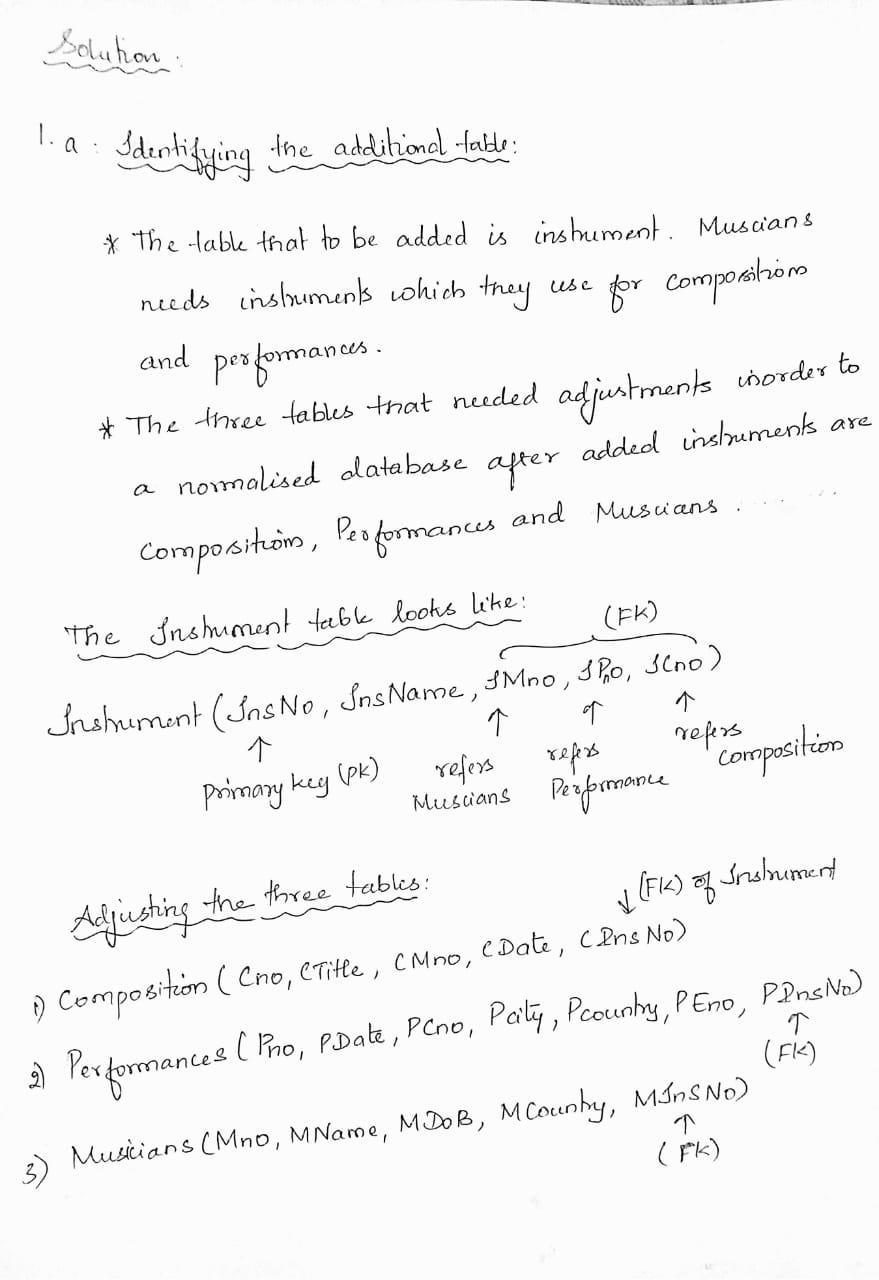 Solution :
1. a : Identifying the additional table:
* The table that to be added is instrument. Muscians
needs instruments which they use for composition
and performances.
* The three tables that needed adjustments inorder to
a normalised database after added instruments are
Composition, Performances and Muscians .
The Instrument table looks like:
(FK)
Instrument (InsNo, InsName, IMno, IPno, ICno)
↑ ↑ ↑ ↑
Primary key (pk) refers Muscians refers Performance refers Composition
Adjusting the three tables:
↓ (FK) of Instrument
1) Composition (Cno, CTitle, CMno, CDate, CInsNo)
2) Performances (Pno, PDate, PCno, Pcity, Pcountry, PEno, PInsNo)
↑
(FK)
3) Musicians (Mno, MName, MDoB, MCountry, MInsNo)
↑
(FK)